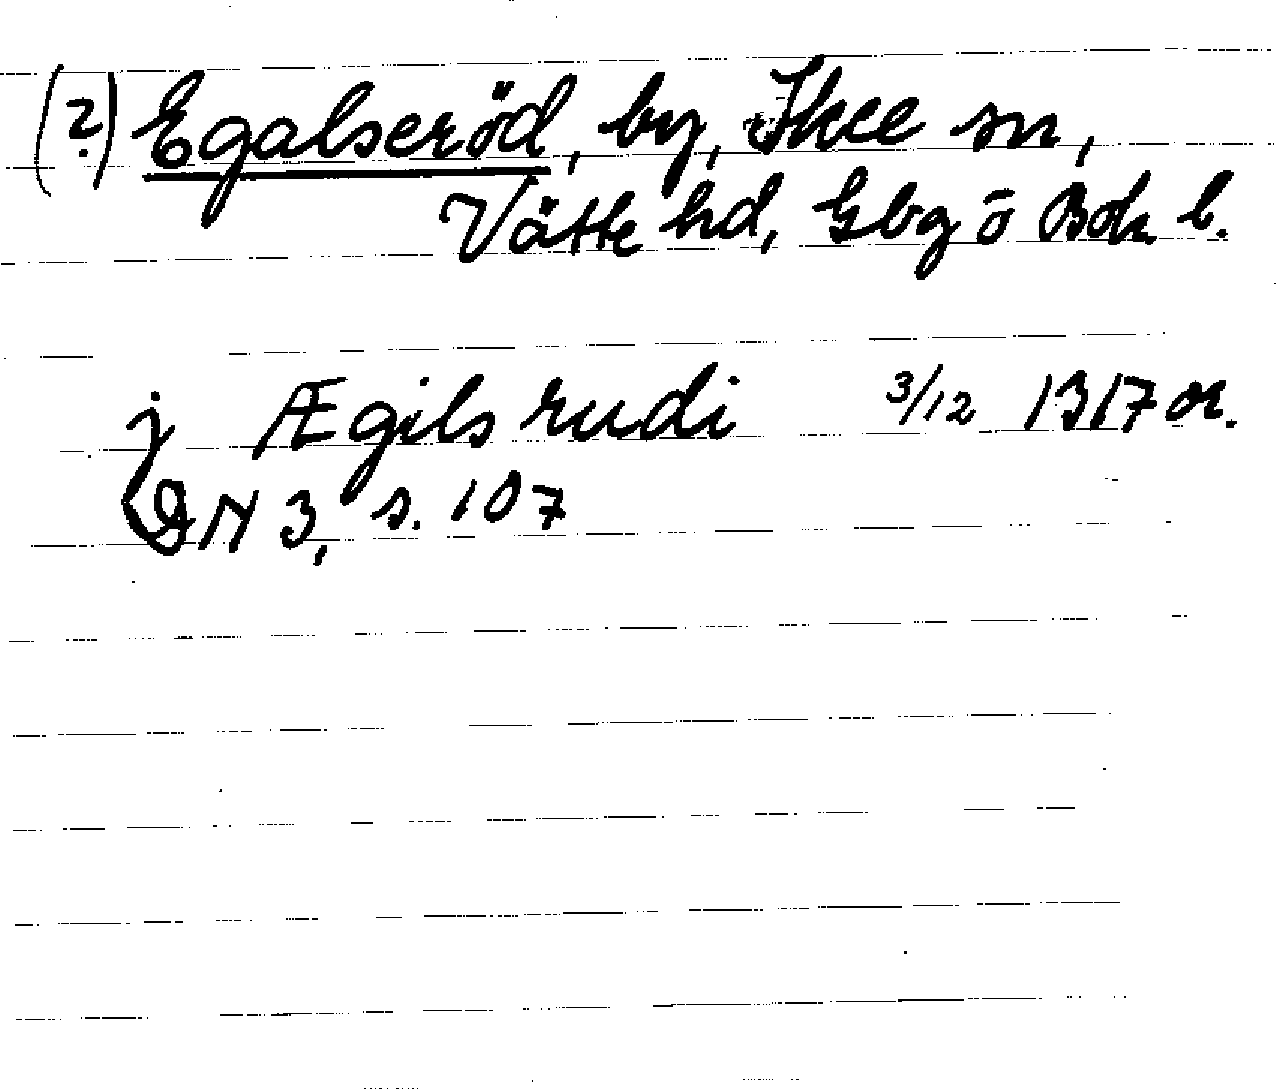 (?) Egalseröd, by, Skee sn,
Vätte hd, Gbg o Boh. l.
j Ægils rudi 3/12 1317 or.
DN 3, s. 107